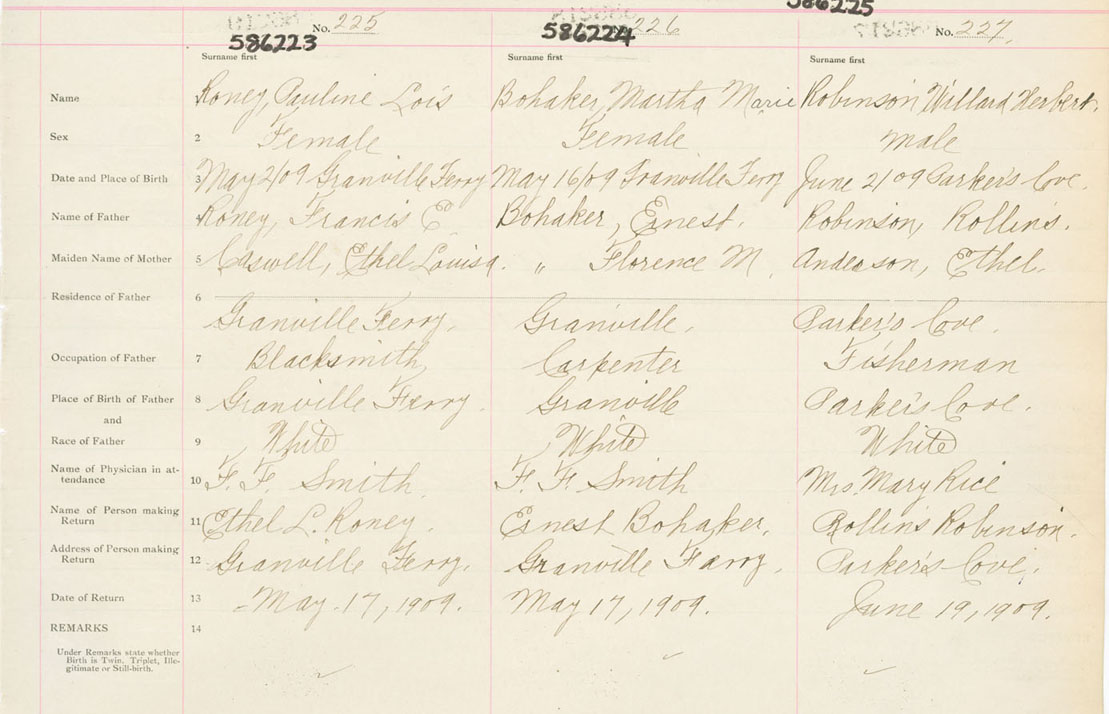 586225
No. 225 No. 226 No. 227.
586223 586224
Surname first Surname first Surname first
Name Roney, Pauline Lois Bohaker, Martha Marie Robinson Willard Herbert.
Sex 2 Female Female male
Date and Place of Birth 3 May 2/09 Granville Ferry May 16/09 Granville Ferry June 2/09 Parker's Cove.
Name of Father 4 Roney, Francis E. Bohaker, Ernest. Robinson, Rollins.
Maiden Name of Mother 5 Caswell, Ethel Louisa. " Florence M. Anderson, Ethel.
Residence of Father 6
Granville Ferry. Granville. Parker's Cove.
Occupation of Father 7 Blacksmith, Carpenter Fisherman
Place of Birth of Father 8 Granville Ferry. Granville Parker's Cove.
and
Race of Father 9 White White White
Name of Physician in at-
tendance 10 F. F. Smith. F. F. Smith Mrs. Mary Rice
Name of Person making
Return 11 Ethel L. Roney. Ernest Bohaker. Rollins Robinson.
Address of Person making
Return 12 Granville Ferry. Granville Farry. Parker's Cove.
Date of Return 13 May. 17, 1909. May 17, 1909. June 19, 1909.
REMARKS 14
Under Remarks state whether
Birth is Twin. Triplet, Ille-
gitimate or Still-birth.